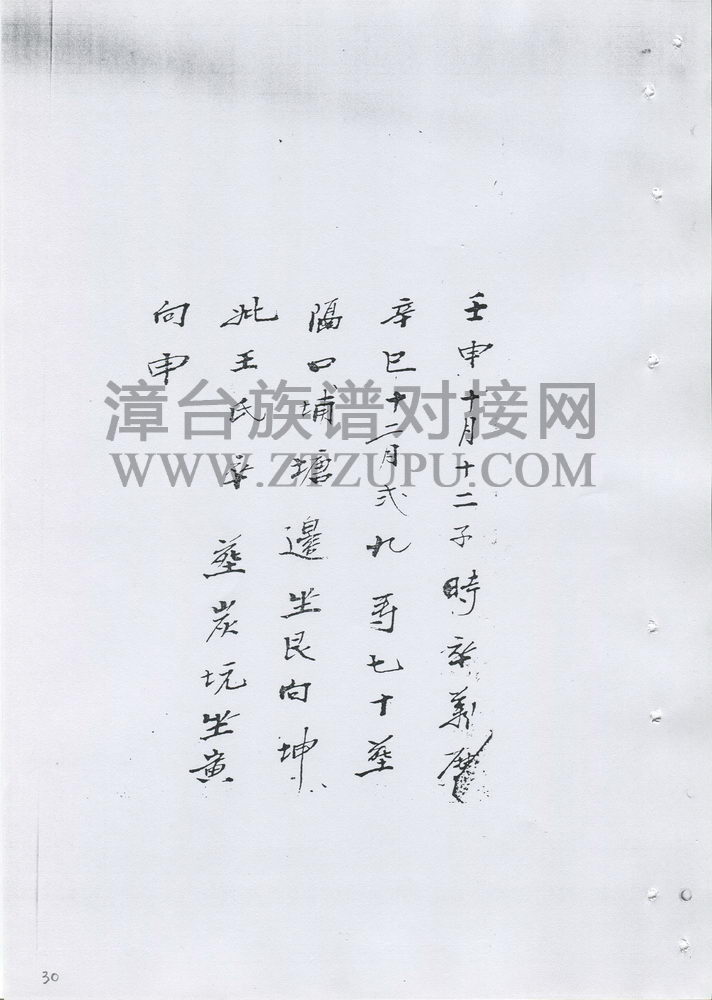 壬申十月十二子時卒葬
辛巳十二月弍九壽七十塟
隔口埔塘邊坐艮向坤
妣王氏卒塟炭坑坐寅
向申
漳台族谱对接网
WWW.ZTZUPU.COM
30